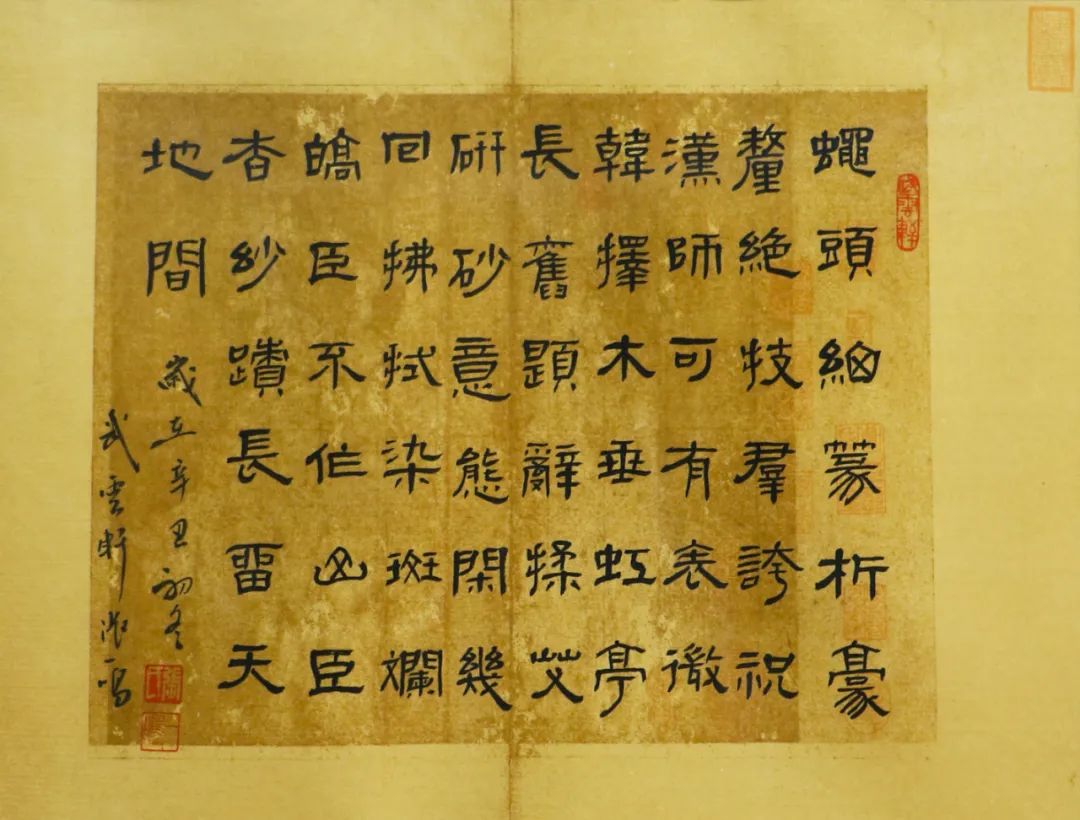 蠅頭細篆析豪
釐絕技羣誇祝
漢師可有表徵
韓擇木垂虹亭
長舊題辭揉艾
研砂意態閑幾
回拂拭染斑斕
皜臣不作山臣
杳紗蹟長留天
地間
歲在辛丑初冬
武雲軒